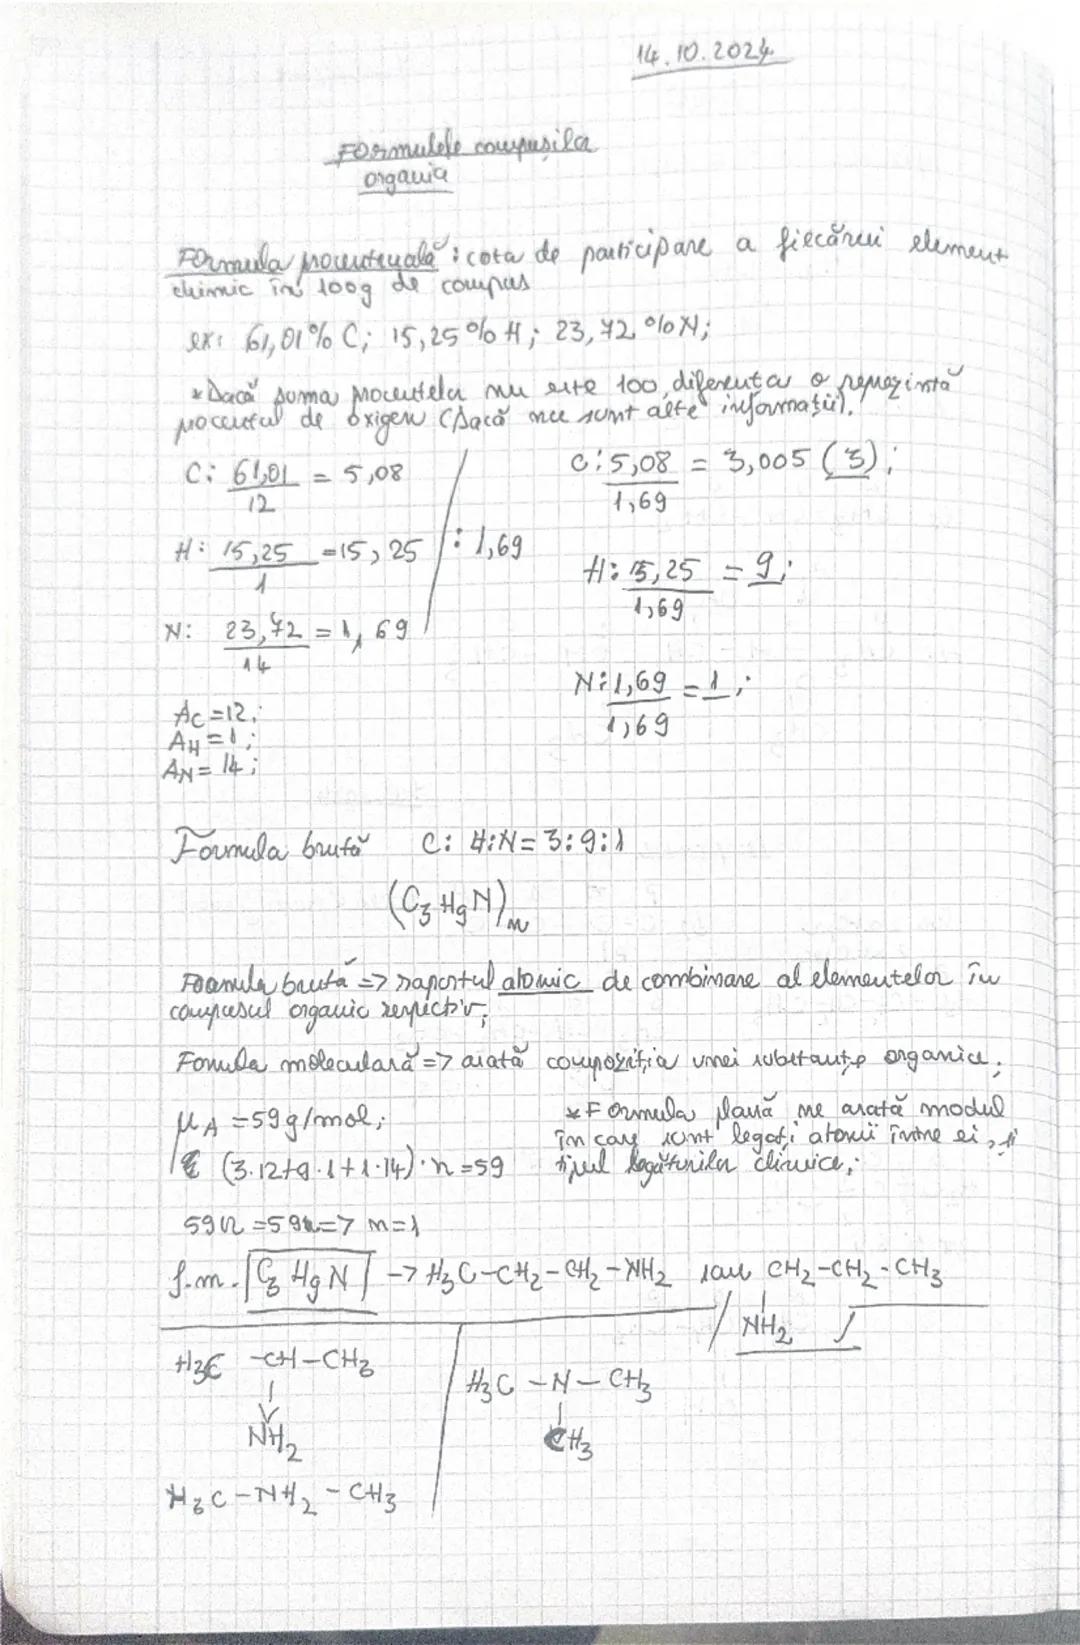 14.10.2024
Formulele compușilor
organici
Formula procentuală: cota de participare a fiecărui element
chimic în 100g de compus
ex: 61,01% C; 15,25% H; 23,72 % N;
*Dacă suma procentelor nu este 100, diferența o reprezintă
procentul de oxigen (Dacă nu sunt alte informații).
C: 61,01/12 = 5,08
H: 15,25/1 = 15,25 /: 1,69
N: 23,72/14 = 1,69
C: 5,08/1,69 = 3,005 (3);
H: 15,25/1,69 = 9;
N: 1,69/1,69 = 1;
AC = 12;
AH = 1;
AN = 14;
Formula brută C: H:N = 3:9:1
(C3H9N)n
Formula brută => raportul atomic de combinare al elementelor în
compusul organic respectiv;
Fomula moleculară => arată compoziția unei substanțe organice;
μA = 59g/mol;
(3·12+9·1+1·14)·n = 59
59n = 59 => n = 1
*Formula plană ne arată modul
în care sunt legați atomii între ei, și
tipul legăturilor chimice;
f.m. C3H9N -> H3C-CH2-CH2-NH2 sau CH2-CH2-CH3
NH2
H3C -CH-CH3
NH2
H3C -N- CH3
CH3
H3C-NH2-CH3